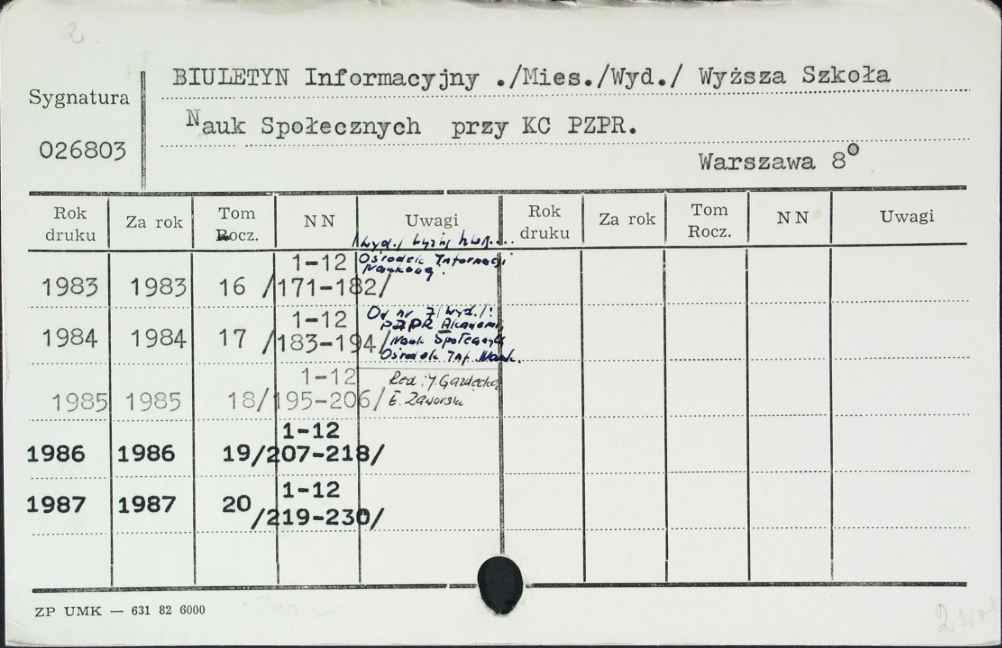 BIULETYN Informacyjny ./Mies./Wyd./ Wyższa Szkoła
Sygnatura
Nauk Społecznych przy KC PZPR.
026803
Warszawa 8°
Rok druku Za rok Tom Rocz. NN Uwagi Rok druku Za rok Tom Rocz. NN Uwagi
1-12 Ośrodek Informacji
Naukową.
1983 1983 16 /171-182/
Od nr 7/wyd./:
1-12 PZPR Akademi
1984 1984 17 /183-194/ Nauk Społecznych
Ośrodek Inf. Nauk.
1-12 Red.: J Gardecka
1985 1985 18/195-206/ E. Zaworska
1-12
1986 1986 19/207-218/
1-12
1987 1987 20 /219-230/
ZP UMK — 631 82 6000